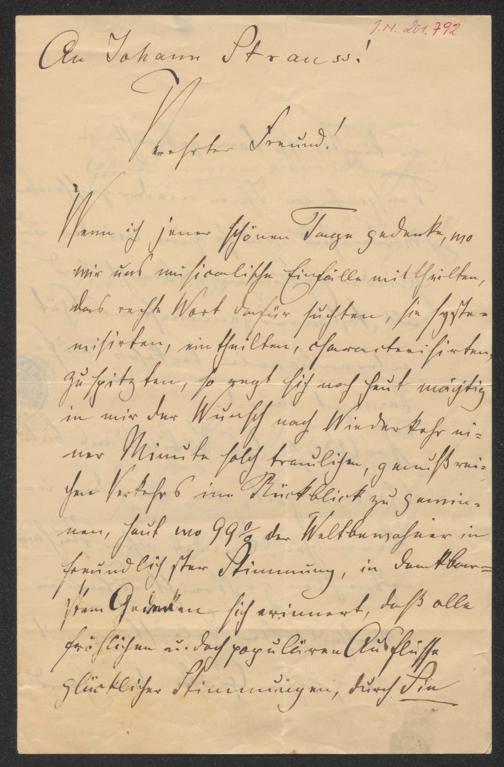 J.N. 201.792
An Johann Strauss!
Verehrter Freund!
Wenn ich jener schönen Tage gedenke, wo
wir uns musicalische Einfälle mittheilten,
das rechte Wort dafür suchten, sie syste-
misirten, eintheilten, characterisirten,
zuspitzten, so regt sich noch heut mächtig
in mir der Wunsch nach Wiederkehr ei-
ner Minute solch traulichen, genußrei-
chen Verkehrs im Rückblick zu gewin-
nen, heut wo 99% der Weltbewohner in
freundlichster Stimmung, in dankbar-
stem Gedenken sich erinnert, daß alle
fröhlichen u. doch populären Ausflüsse
glücklicher Stimmungen, durch Sie